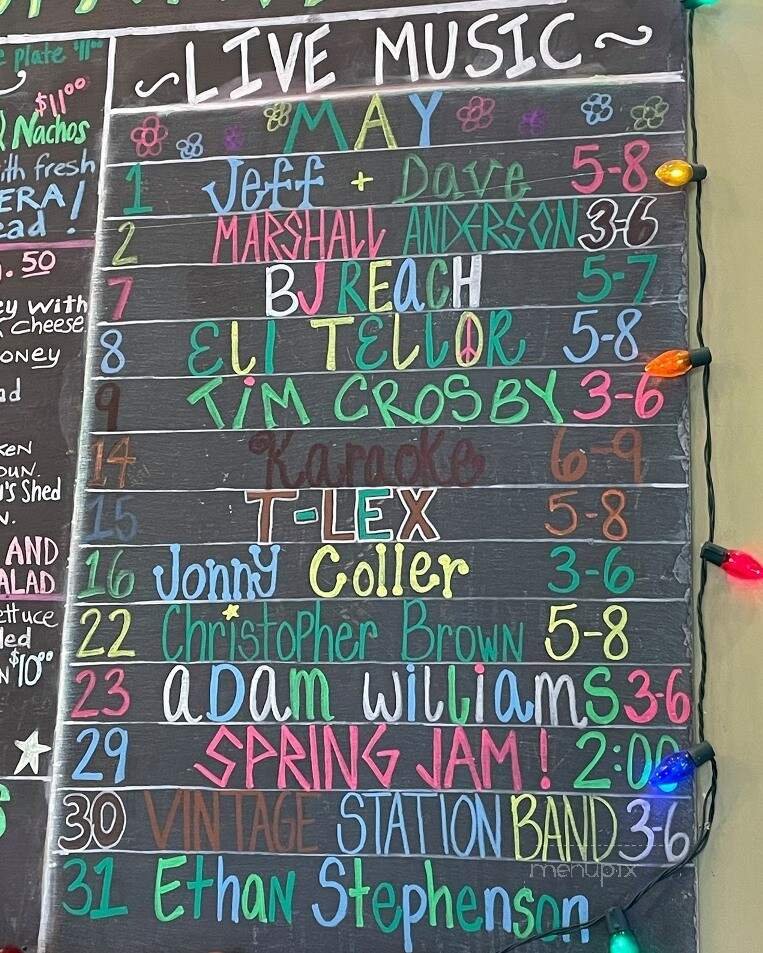 e plate 11⁰⁰
$11⁰⁰
Nachos
ith fresh
ERA!
ead!
.50
ey with
Cheese
oney
ad
KEN
OUN.
U'S Shed
N.
AND
ALAD
ettuce
led
N $10⁰⁰
~LIVE MUSIC~
MAY
1 Jeff + Dave 5-8
2 MARSHALL ANDERSON 3-6
7 BJ REACH 5-7
8 ELI TELLOR 5-8
9 TIM CROSBY 3-6
14 Karaoke 6-9
15 T-LEX 5-8
16 Jonny Coller 3-6
22 Christopher Brown 5-8
23 aDam Williams 3-6
29 SPRING JAM! 2:00
30 VINTAGE STATION BAND 3-6
31 Ethan Stephenson
menupix